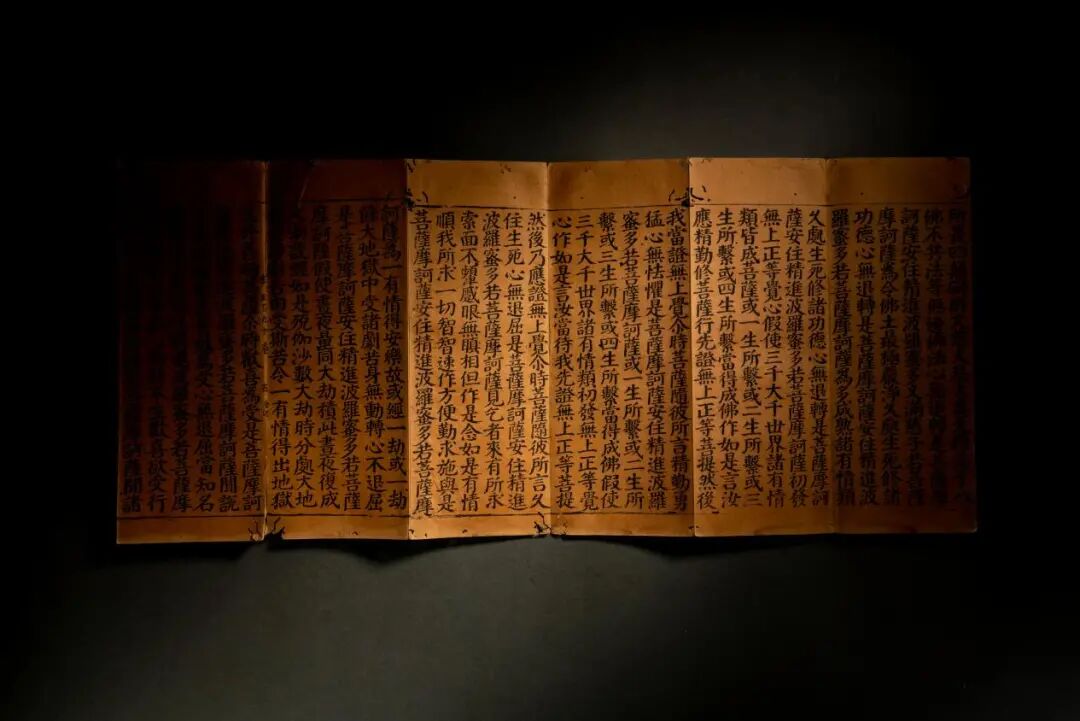 訶薩安住精進波羅蜜多
摩訶薩為令佛土最極嚴淨久處生死修諸
功德心無退轉是菩薩摩訶薩安住精進波
羅蜜多若菩薩摩訶薩為多成熟諸有情類
久處生死修諸功德心無退轉是菩薩摩訶
薩安住精進波羅蜜多若菩薩摩訶薩初發
無上正等覺心假使三千大千世界諸有情
類皆成菩薩或一生所繫或二生所繫或三
生所繫或四生所繫當得成佛作如是言汝
應精勤修菩薩行先證無上正等菩提然後
我當證無上覺尒時菩薩隨彼所言精勤勇
猛心無怯懼是菩薩摩訶薩安住精進波羅
蜜多若菩薩摩訶薩或一生所繫或二生所
繫或三生所繫或四生所繫當得成佛假使
三千大千世界諸有情類初發無上正等覺
心作如是言汝當待我先證無上正等菩提
然後乃應證無上覺尒時菩薩隨彼所言久
住生死心無退屈是菩薩摩訶薩安住精進
波羅蜜多若菩薩摩訶薩見乞者來有所求
索面不顰蹙眼無瞋相但作是念如是有情
順我所求一切智智速作方便勤求施與是
菩薩摩訶薩安住精進波羅蜜多若菩薩摩
訶薩為一有情得安樂故或經一劫或一劫
餘大地獄中受諸劇苦身無動轉心不退屈
是菩薩摩訶薩安住精進波羅蜜多若菩薩
摩訶薩假使晝夜量同大劫積此晝夜復成
如是殑伽沙數大劫時分處大地
而受斯苦令一有情得出地獄
尒時歡喜為愛是菩薩摩訶
羅蜜多若菩薩摩訶薩聞說
心無退屈當知名
羅蜜多若菩薩摩
歡喜欲受行
薩聞諸